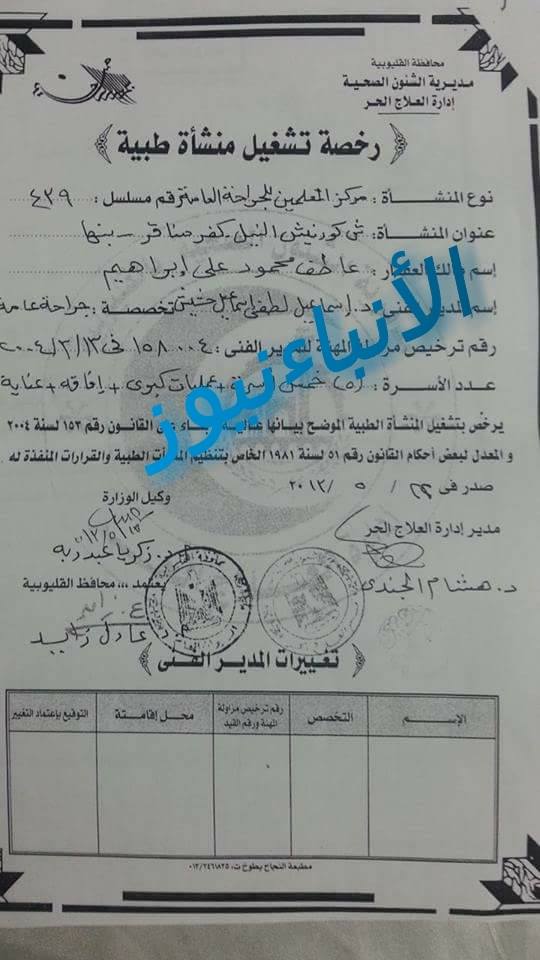 محافظة القليوبية
مديرية الشئون الصحية
إدارة العلاج الحر
رخصة تشغيل منشأة طبية
نوع المنشأة : مركز المعلمين للجراحة العامة رقم مسلسل : ٤٣٩
عنوان المنشأة : ش كورنيش النيل - كفر مناقر - بنها
اسم مالك العقار : عاطف محمود على إبراهيم
اسم المدير الفنى : د. إسماعيل لطفى إسماعيل تخصصة : جراحة عامة
رقم ترخيص مزاولة المهنة للمدير الفنى : ١٥٨٠٠٤ فى ٢٠٠٤/٣/١٣
عدد الأسرة : (٥) خمس أسرة + عمليات كبرى + إفاقة + عناية
الأنباء نيوز
يرخص بتشغيل المنشأة الطبية الموضح بيانها عالية بناء على القانون رقم ١٥٣ لسنة ٢٠٠٤
و المعدل لبعض أحكام القانون رقم ٥١ لسنة ١٩٨١ الخاص بتنظيم المنشأت الطبية والقرارات المنفذة له
صدر فى ٢٢ / ٥ / ٢٠١٢
وكيل الوزارة
مدير إدارة العلاج الحر
د. زكريا عبد ربه
د. هشام الجندى
يعتمد ،،، محافظ القليوبية
عادل زايد
تغييرات المدير الفنى
الإسم
التخصص
رقم ترخيص مزاولة المهنة ورقم القيد
محل إقامتة
التوقيع بإعتماد التغيير
مطبعة النجاح بطوخ ت: ٠١٣/٢٤٦١٨٢٥